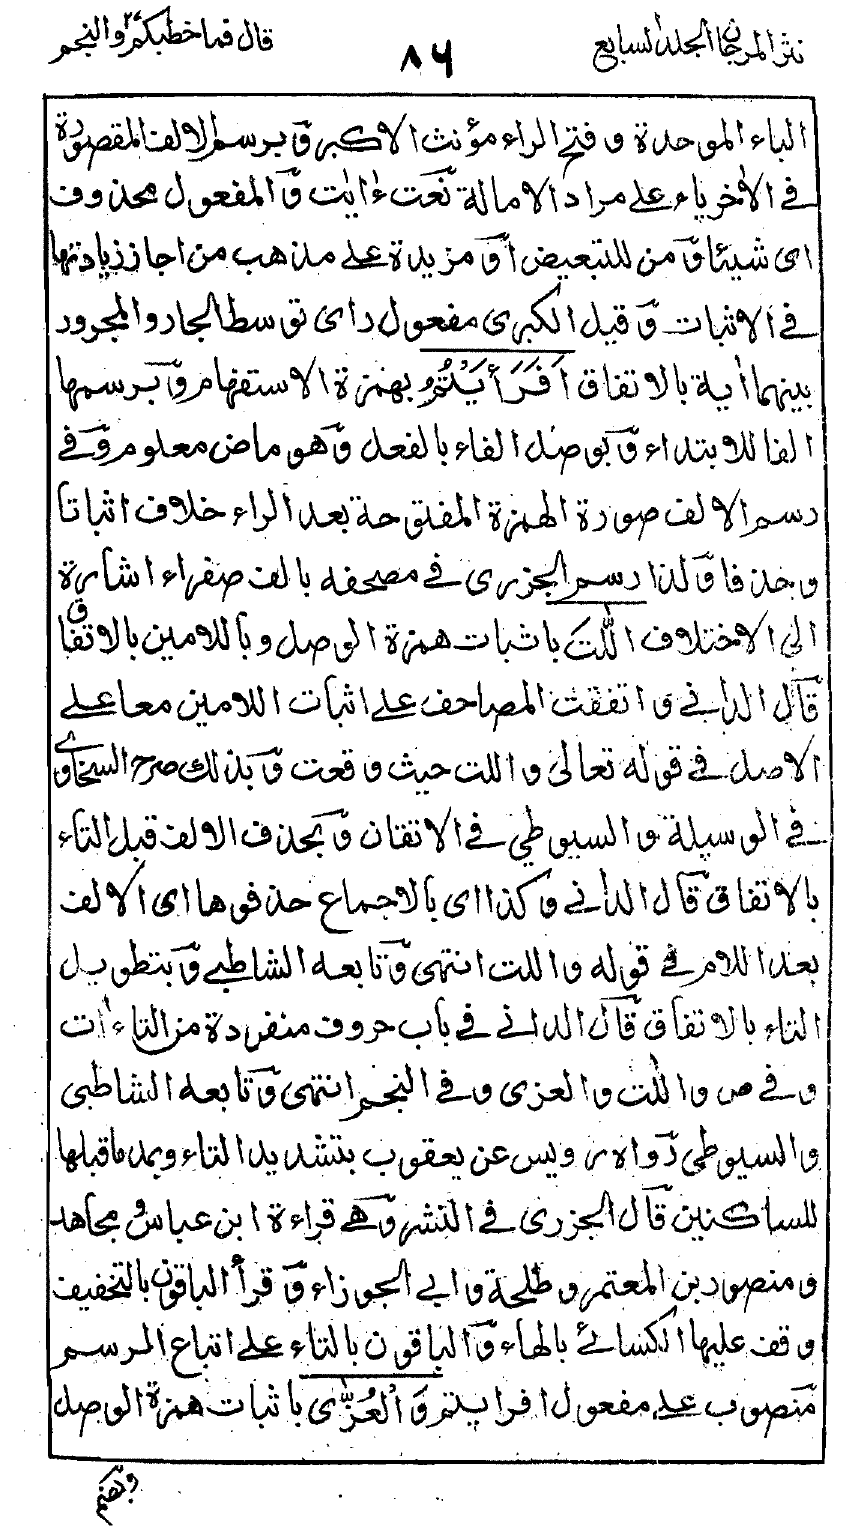 نثر المرجان المجلد السابع
٨٦
قال فما خطبكم ٢٧ والنجم
الباء الموحدة و فتح الراء مؤنث الاكبر و برسم الالف المقصورة
فى الاخر ياء على مراد الامالة نعت ءايٰت و المفعول محذوف
اى شيئا و من للتبعيض او مزيدة على مذهب من اجاز زيادتها
فى الاثبات و قيل الكبرى مفعول راى توسط الجار و المجرور
بينهما اية بالاتفاق اَفَرَأَيْتُمُ بهمزة الاستفهام و برسمها
الفا للابتداء و بوصل الفاء بالفعل و هو ماض معلوم و فى
رسم الالف صورة الهمزة المفتوحة بعد الراء خلاف اثباتا
و حذفا و لذا رسم الجزرى فى مصحفه بالف صفراء اشارة
الى الاختلاف اللّٰتَ باثبات همزة الوصل و باللامين بالاتفاق
قال الدانى و اتفقت المصاحف على اثبات اللامين معا على
الاصل فى قوله تعالى و اللت حيث وقعت و بذلك صرح السخاوى
فى الوسيلة و السيوطى فى الاتقان و بحذف الالف قبل التاء
بالاتفاق قال الدانى و كذا اى بالاجماع حذفوها اى الالف
بعد اللام فى قوله و اللت انتهى و تابعه الشاطبى و بتطويل
التاء بالاتفاق قال الدانى فى باب حروف منفردة من التاءات
و فى ص و اللّٰت و العزى و فى النجم انتهى و تابعه الشاطبى
و السيوطى رواه رويس عن يعقوب بتشديد التاء و بمد ما قبلها
للساكنين قال الجزرى فى النشر و هى قراءة ابن عباس و مجاهد
و منصور بن المعتمر و طلحة و ابى الجوزاء و قرأ الباقون بالتخفيف
وقف عليها الكسائى بالهاء و الباقون بالتاء على اتباع الرسم
منصوب على مفعول افرايتم وَ الْعُزّٰى باثبات همزة الوصل
و بضم